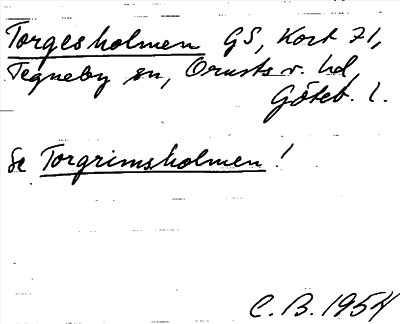 Torgesholmen GS, Kort 71,
Tegneby sn, Orusts v. hd
Göteb. l.
Se Torgrimsholmen!
C.B. 1954